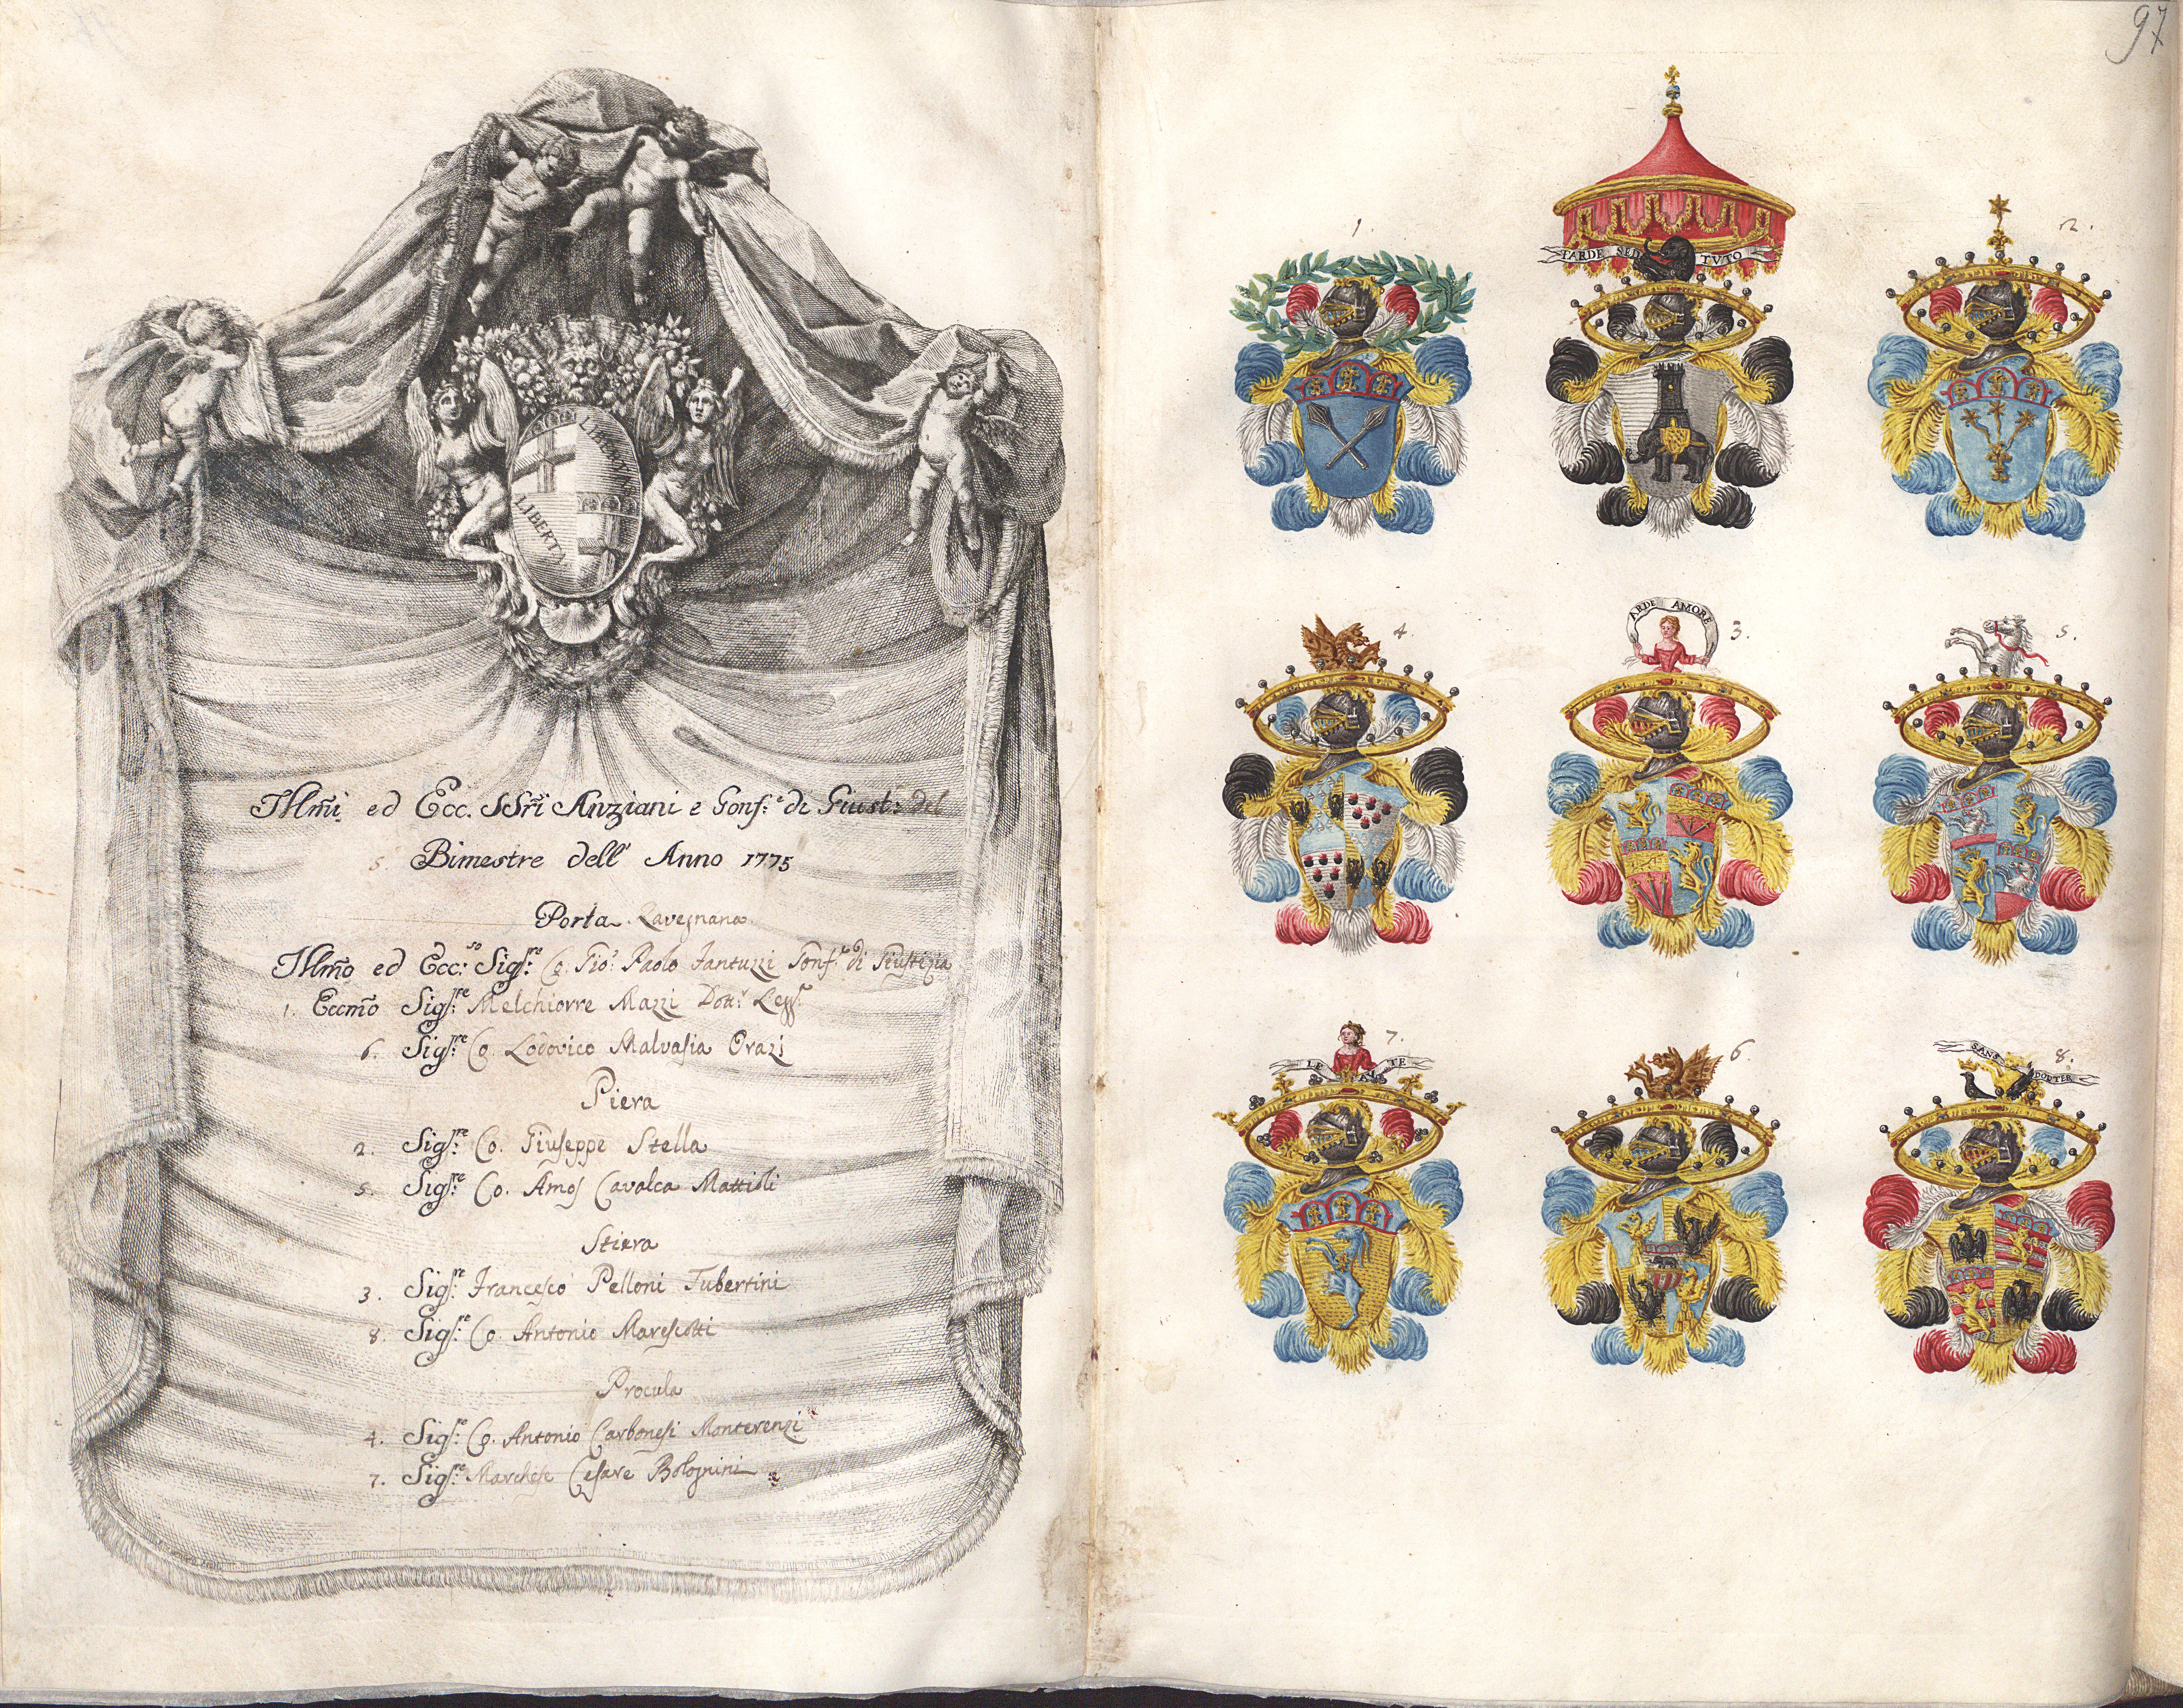 LIBERTAS
LIBERTAS
Illm̃i ed Ecc. SSri Anziani e Gonf.e di Giust: del
5. Bimestre dell' Anno 1775
Porta Ravegnana
Illm̃o ed Ecc:so Sig:re Co. Gio: Paolo Fantuzzi Gonf.e di Giustizia
1. Eccm̃o Sig:re Melchiorre Mazzi Dott:r Legg:e
6. Sig:re Co. Lodovico Malvasia Orazi
Piera
2. Sig:re Co. Giuseppe Stella
5. Sig:re Co. Amos Cavalca Mattioli
Stiera
3. Sig:re Francesco Pelloni Tubertini
8. Sig:re Co. Antonio Marescotti
Procula
4. Sig:re Co. Antonio Carbonesi Monterenzi
7. Sig:re Marchese Cesare Bolognini
97
1.
TARDE SED TVTO
2.
4.
ARDE AMORE
3.
5.
7.
6.
SANS
DOVTER
8.